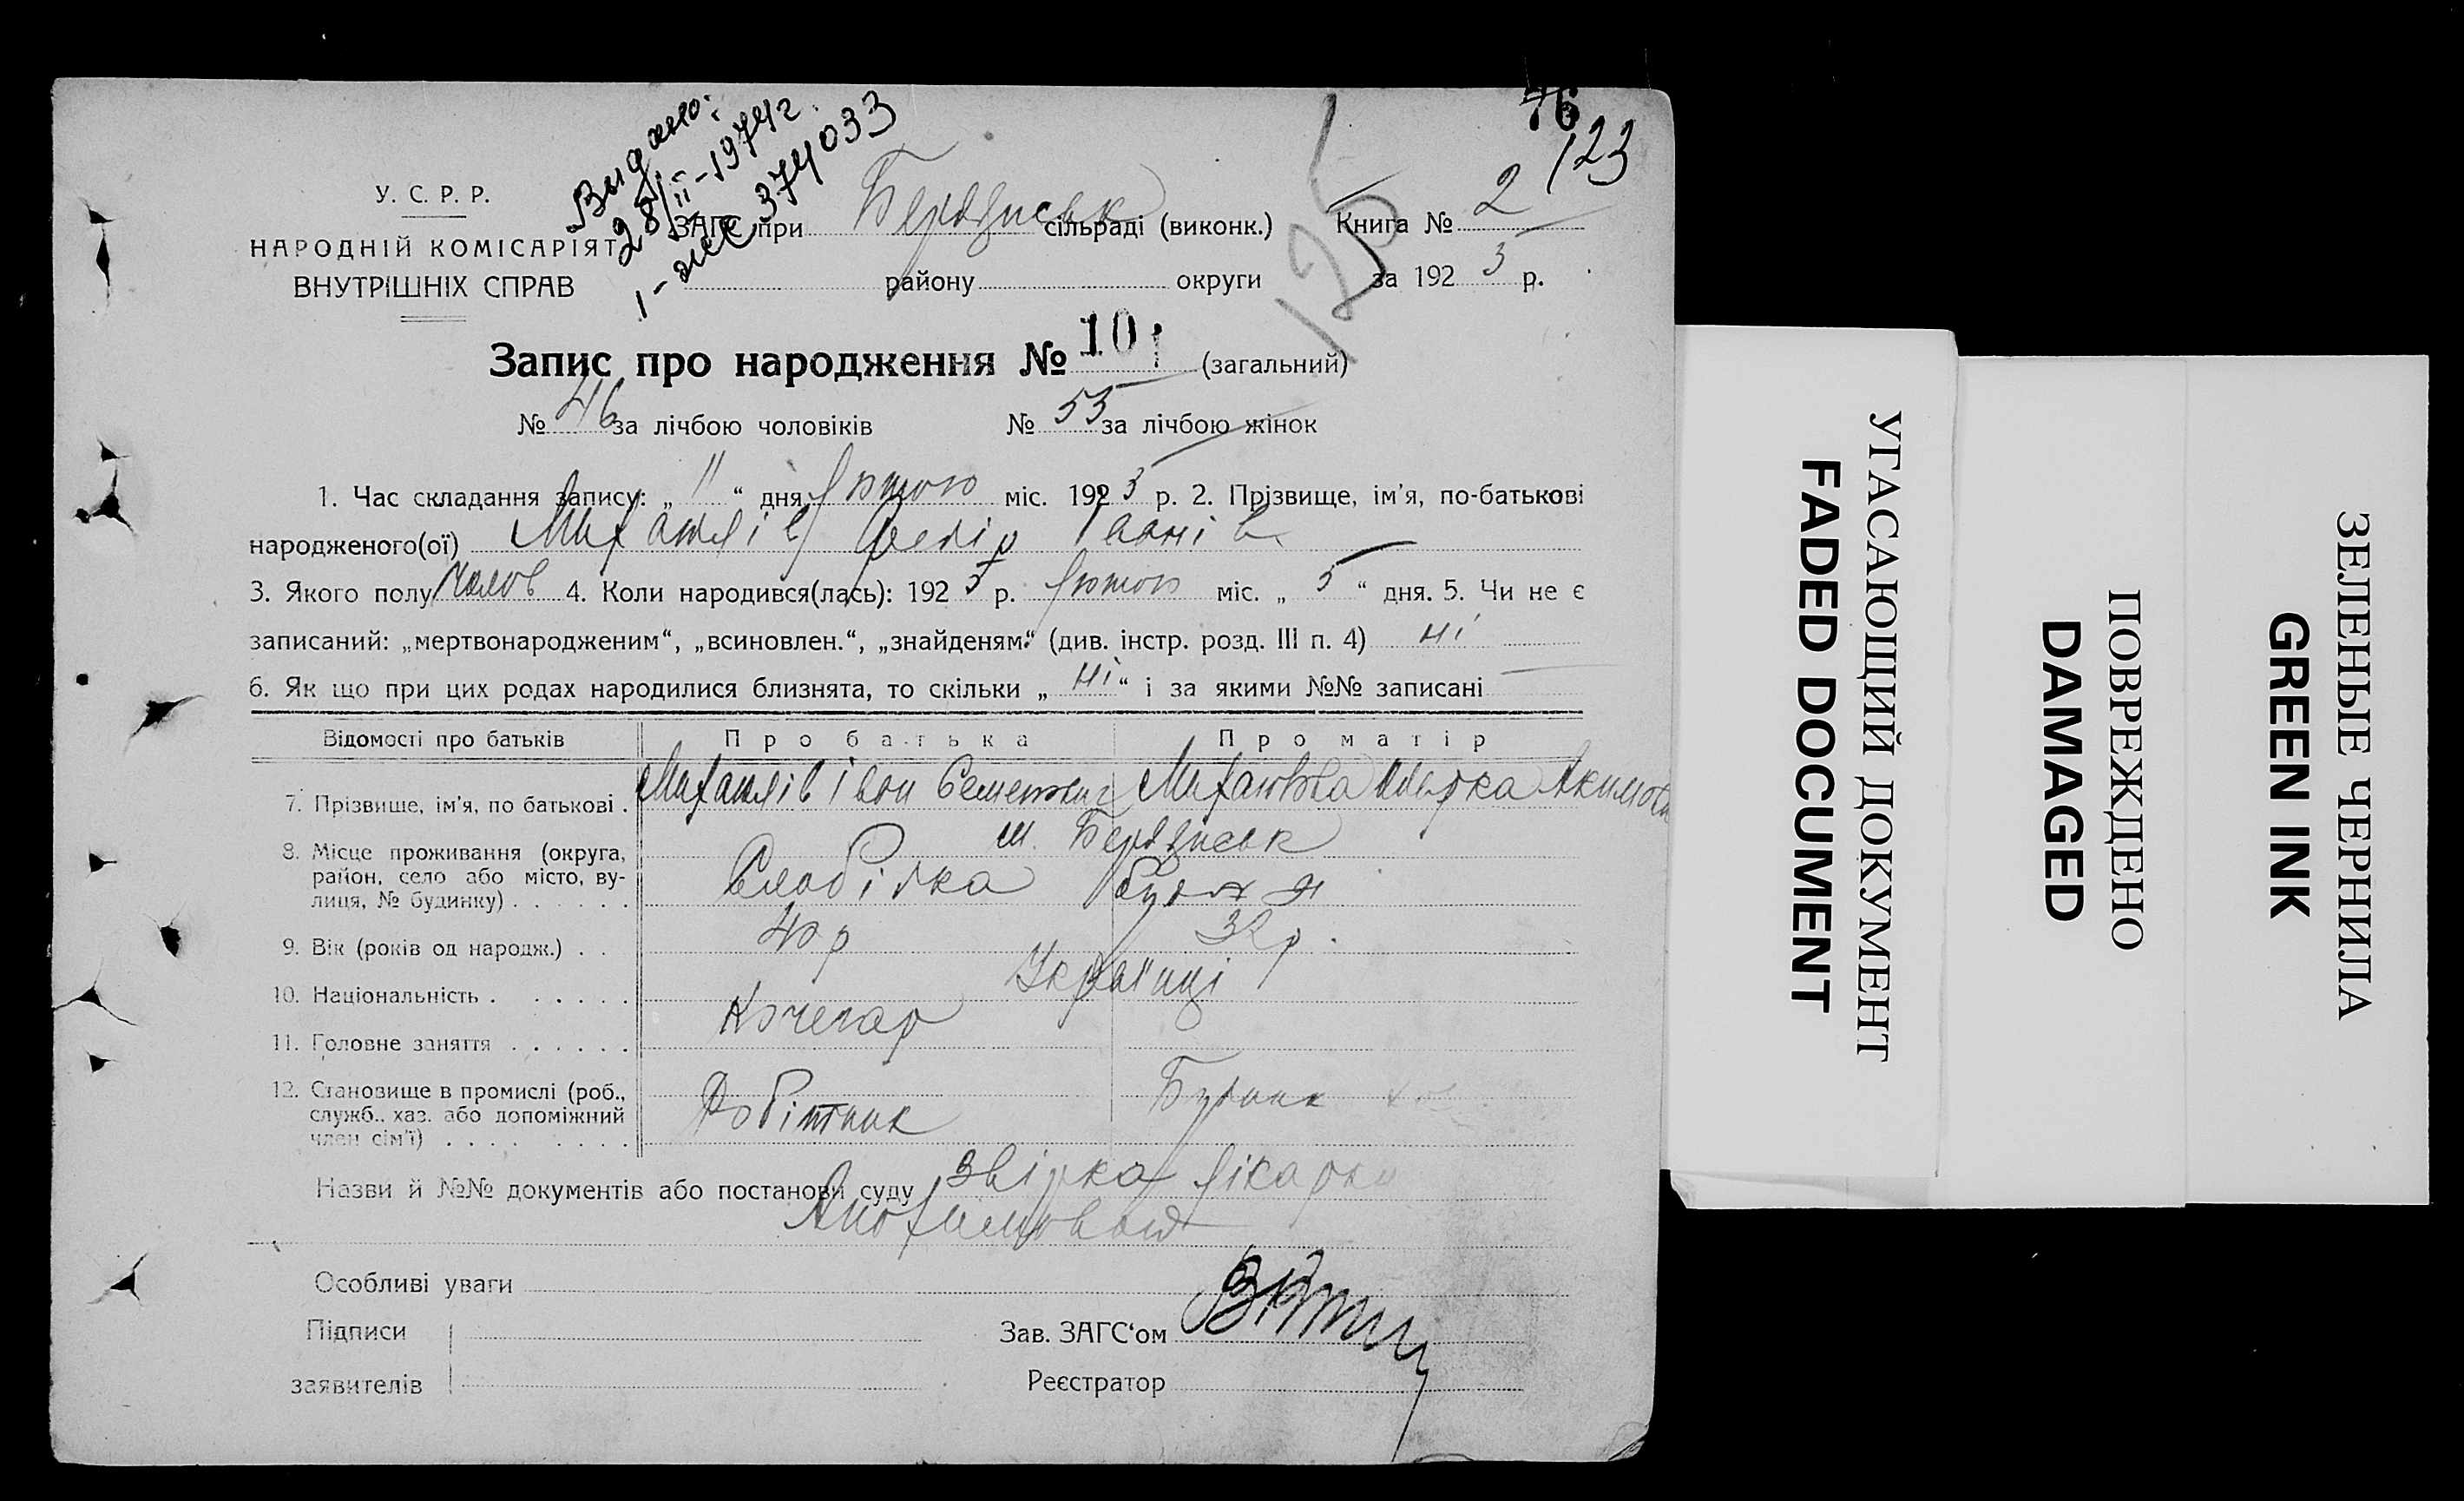 76
123
Видано:
28/II-1974г
1-ЖС 374033
125
У. С. Р. Р.
НАРОДНІЙ КОМІСАРІЯТ
ВНУТРІШНІХ СПРАВ
ЗАГС при Бердянськ сільраді (виконк.)
району округи
Книга № 2
за 1925 р.
Запис про народження № 101 (загальний)
№ 46 за лічбою чоловіків № 55 за лічбою жінок
1. Час складання запису: „ 11 “ дня лютого міс. 1925 р. 2. Прізвище, ім’я, по-батькові
народженого(ої) Михайлів Федір Іванів
3. Якого полу Чолов 4. Коли народився(лась): 1925 р. лютого міс. „ 5 “ дня. 5. Чи не є
записаний: „мертвонародженим“, „всиновлен.“, „знайденям“ (див. інстр. розд. III п. 4) ні
6. Як що при цих родах народилися близнята, то скільки „ ні “ і за якими №№ записані —
Відомості про батьків Про батька Про матір
7. Прізвище, ім’я, по батькові . Михайлів Іван Семенович Михайлова Акимов
8. Місце проживання (округа, район, село або місто, вулиця, № будинку) . . . . . . м. Бердянськ
Слобідка
9. Вік (років од народж.) . . 40 р 32 р.
10. Національність . . . . . . Українці
11. Головне заняття . . . . . . Кочегар
12. Становище в промислі (роб., служб., хаз. або допоміжний член сім’ї) . . . . . . . . Робітник
Назви й №№ документів або постанови суду Звірка лікарки
Особливі уваги
Підписи
заявителів
Зав. ЗАГС‘ом
Реєстратор
УГАСАЮЩИЙ ДОКУМЕНТ
FADED DOCUMENT
ПОВРЕЖДЕНО
DAMAGED
ЗЕЛЕНЫЕ ЧЕРНИЛА
GREEN INK